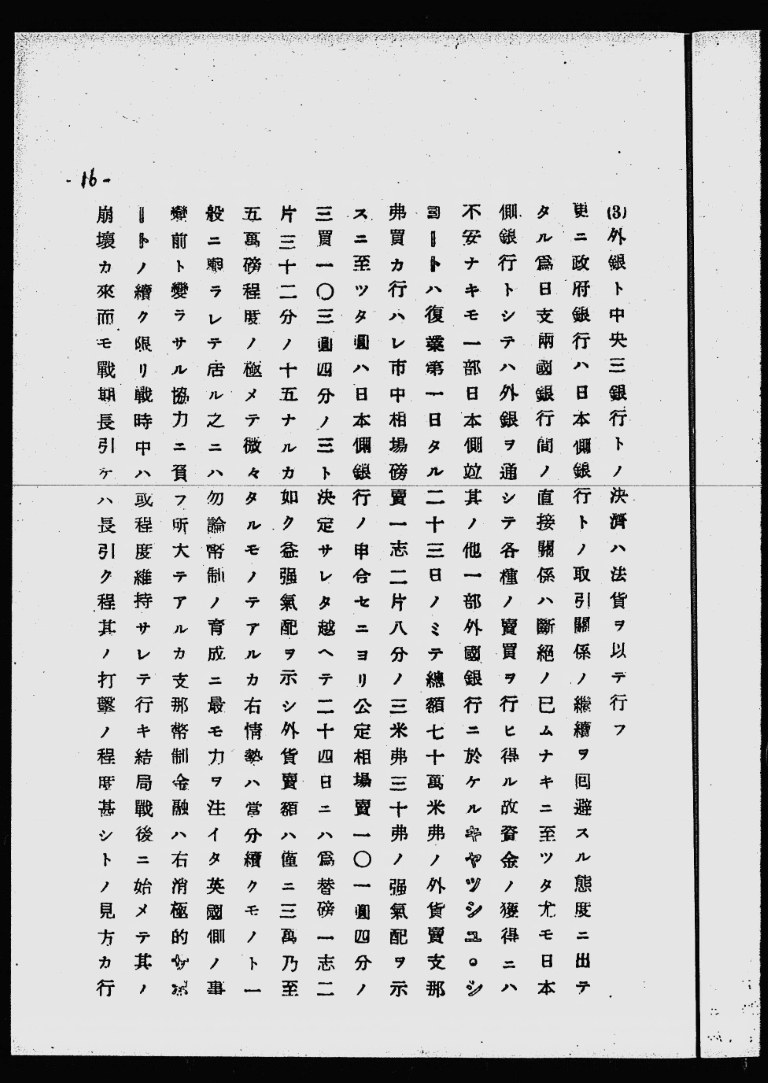 -16-
(3)外銀ト中央三銀行トノ決濟ハ法貨ヲ以テ行フ
更ニ政府銀行ハ日本側銀行トノ取引關係ノ繼續ヲ囘避スル態度ニ出テ
タル爲日支兩國銀行間ノ直接關係ハ斷絶ノ已ムナキニ至ツタ尤モ日本
側銀行トシテハ外銀ヲ通シテ各種ノ賣買ヲ行ヒ得ル故資金ノ獲得ニハ
不安ナキモ一部日本側竝其ノ他一部外國銀行ニ於ケルキヤツシユ。シ
ヨートハ復業第一日タル二十三日ノミテ總額七十萬米弗ノ外貨賣支那
弗買カ行ハレ市中相場磅賣一志二片八分ノ三米弗三十弗ノ强氣配ヲ示
スニ至ツタ圓ハ日本側銀行ノ申合セニヨリ公定相場賣一〇一圓四分ノ
三買一〇三圓四分ノ三ト決定サレタ越ヘテ二十四日ニハ爲替磅一志二
片三十二分ノ十五ナルカ如ク益强氣配ヲ示シ外貨賣額ハ僅ニ三萬乃至
五萬磅程度ノ極メテ微々タルモノテアルカ右情勢ハ當分續クモノト一
般ニ觀ラレテ居ル之ニハ勿論幣制ノ育成ニ最モ力ヲ注イタ英國側ノ事
變前ト變ラサル協力ニ負フ所大テアルカ支那幣制金融ハ右消極的サポ
ートノ續ク限リ戰時中ハ或程度維持サレテ行キ結局戰後ニ始メテ其ノ
崩壞カ來而モ戰期長引ケハ長引ク程其ノ打擊ノ程度甚シトノ見方カ行